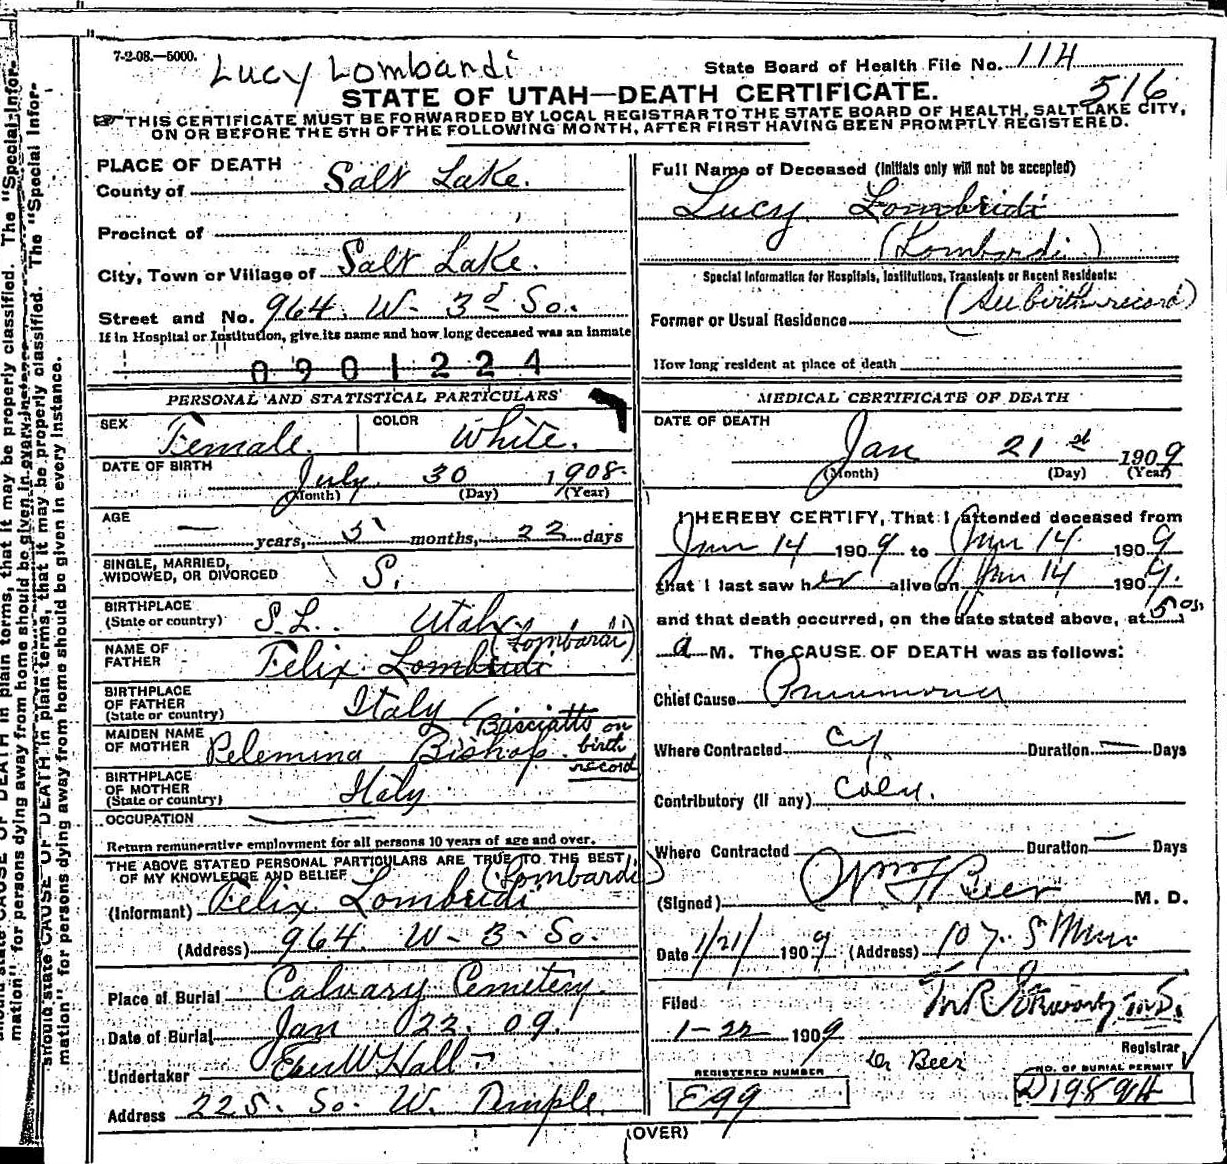 7-2-08.—5000.
Lucy Lombardi
State Board of Health File No. 114
516
STATE OF UTAH—DEATH CERTIFICATE.
THIS CERTIFICATE MUST BE FORWARDED BY LOCAL REGISTRAR TO THE STATE BOARD OF HEALTH, SALT LAKE CITY,
ON OR BEFORE THE 5TH OF THE FOLLOWING MONTH, AFTER FIRST HAVING BEEN PROMPTLY REGISTERED.
PLACE OF DEATH
County of Salt Lake.
Precinct of
City, Town or Village of Salt Lake.
Street and No. 964. W. 3d So.
If in Hospital or Institution, give its name and how long deceased was an inmate
0901224
PERSONAL AND STATISTICAL PARTICULARS
SEX Female. COLOR White.
DATE OF BIRTH July 30 1908.
(Month) (Day) (Year)
AGE — years, 5 months, 22 days
SINGLE, MARRIED,
WIDOWED, OR DIVORCED S.
BIRTHPLACE
(State or country) S.L. Utah
(Lombardi)
NAME OF
FATHER Felix Lombridi
BIRTHPLACE
OF FATHER
(State or country) Italy
(Bisciatto on
birth
record
MAIDEN NAME
OF MOTHER Pelemina Bishop.
BIRTHPLACE
OF MOTHER
(State or country) Italy
OCCUPATION
Return remunerative employment for all persons 10 years of age and over.
THE ABOVE STATED PERSONAL PARTICULARS ARE TRUE TO THE BEST
OF MY KNOWLEDGE AND BELIEF (Lombardi)
(Informant) Felix Lombridi
(Address) 964. W- 3- So.
Place of Burial Calvary Cemetery.
Date of Burial Jan 22. 09.
Undertaker Eber W Hall
Address 225. So. W. Temple.
Full Name of Deceased (Initials only will not be accepted)
Lucy Lombridi
(Lombardi)
Special Information for Hospitals, Institutions, Transients or Recent Residents:
(See birth record)
Former or Usual Residence
How long resident at place of death
MEDICAL CERTIFICATE OF DEATH
DATE OF DEATH
Jan 21st 1909
(Month) (Day) (Year)
I HEREBY CERTIFY, That I attended deceased from
Jan 14 1909 to Jan 14 1909
that I last saw her alive on Jan 14 1909.
and that death occurred, on the date stated above, at 5
a M. The CAUSE OF DEATH was as follows:
Chief Cause Pneumonia
Where Contracted Cy. Duration — Days
Contributory (if any)
Where Contracted — Duration — Days
(Signed) Wm F Beer M. D.
Date 1/21/ 1909 (Address) 107. S Main
Filed
1-22 1909
Registrar
Dr Beer
REGISTERED NUMBER
E99
NO. OF BURIAL PERMIT
D19894
(OVER)